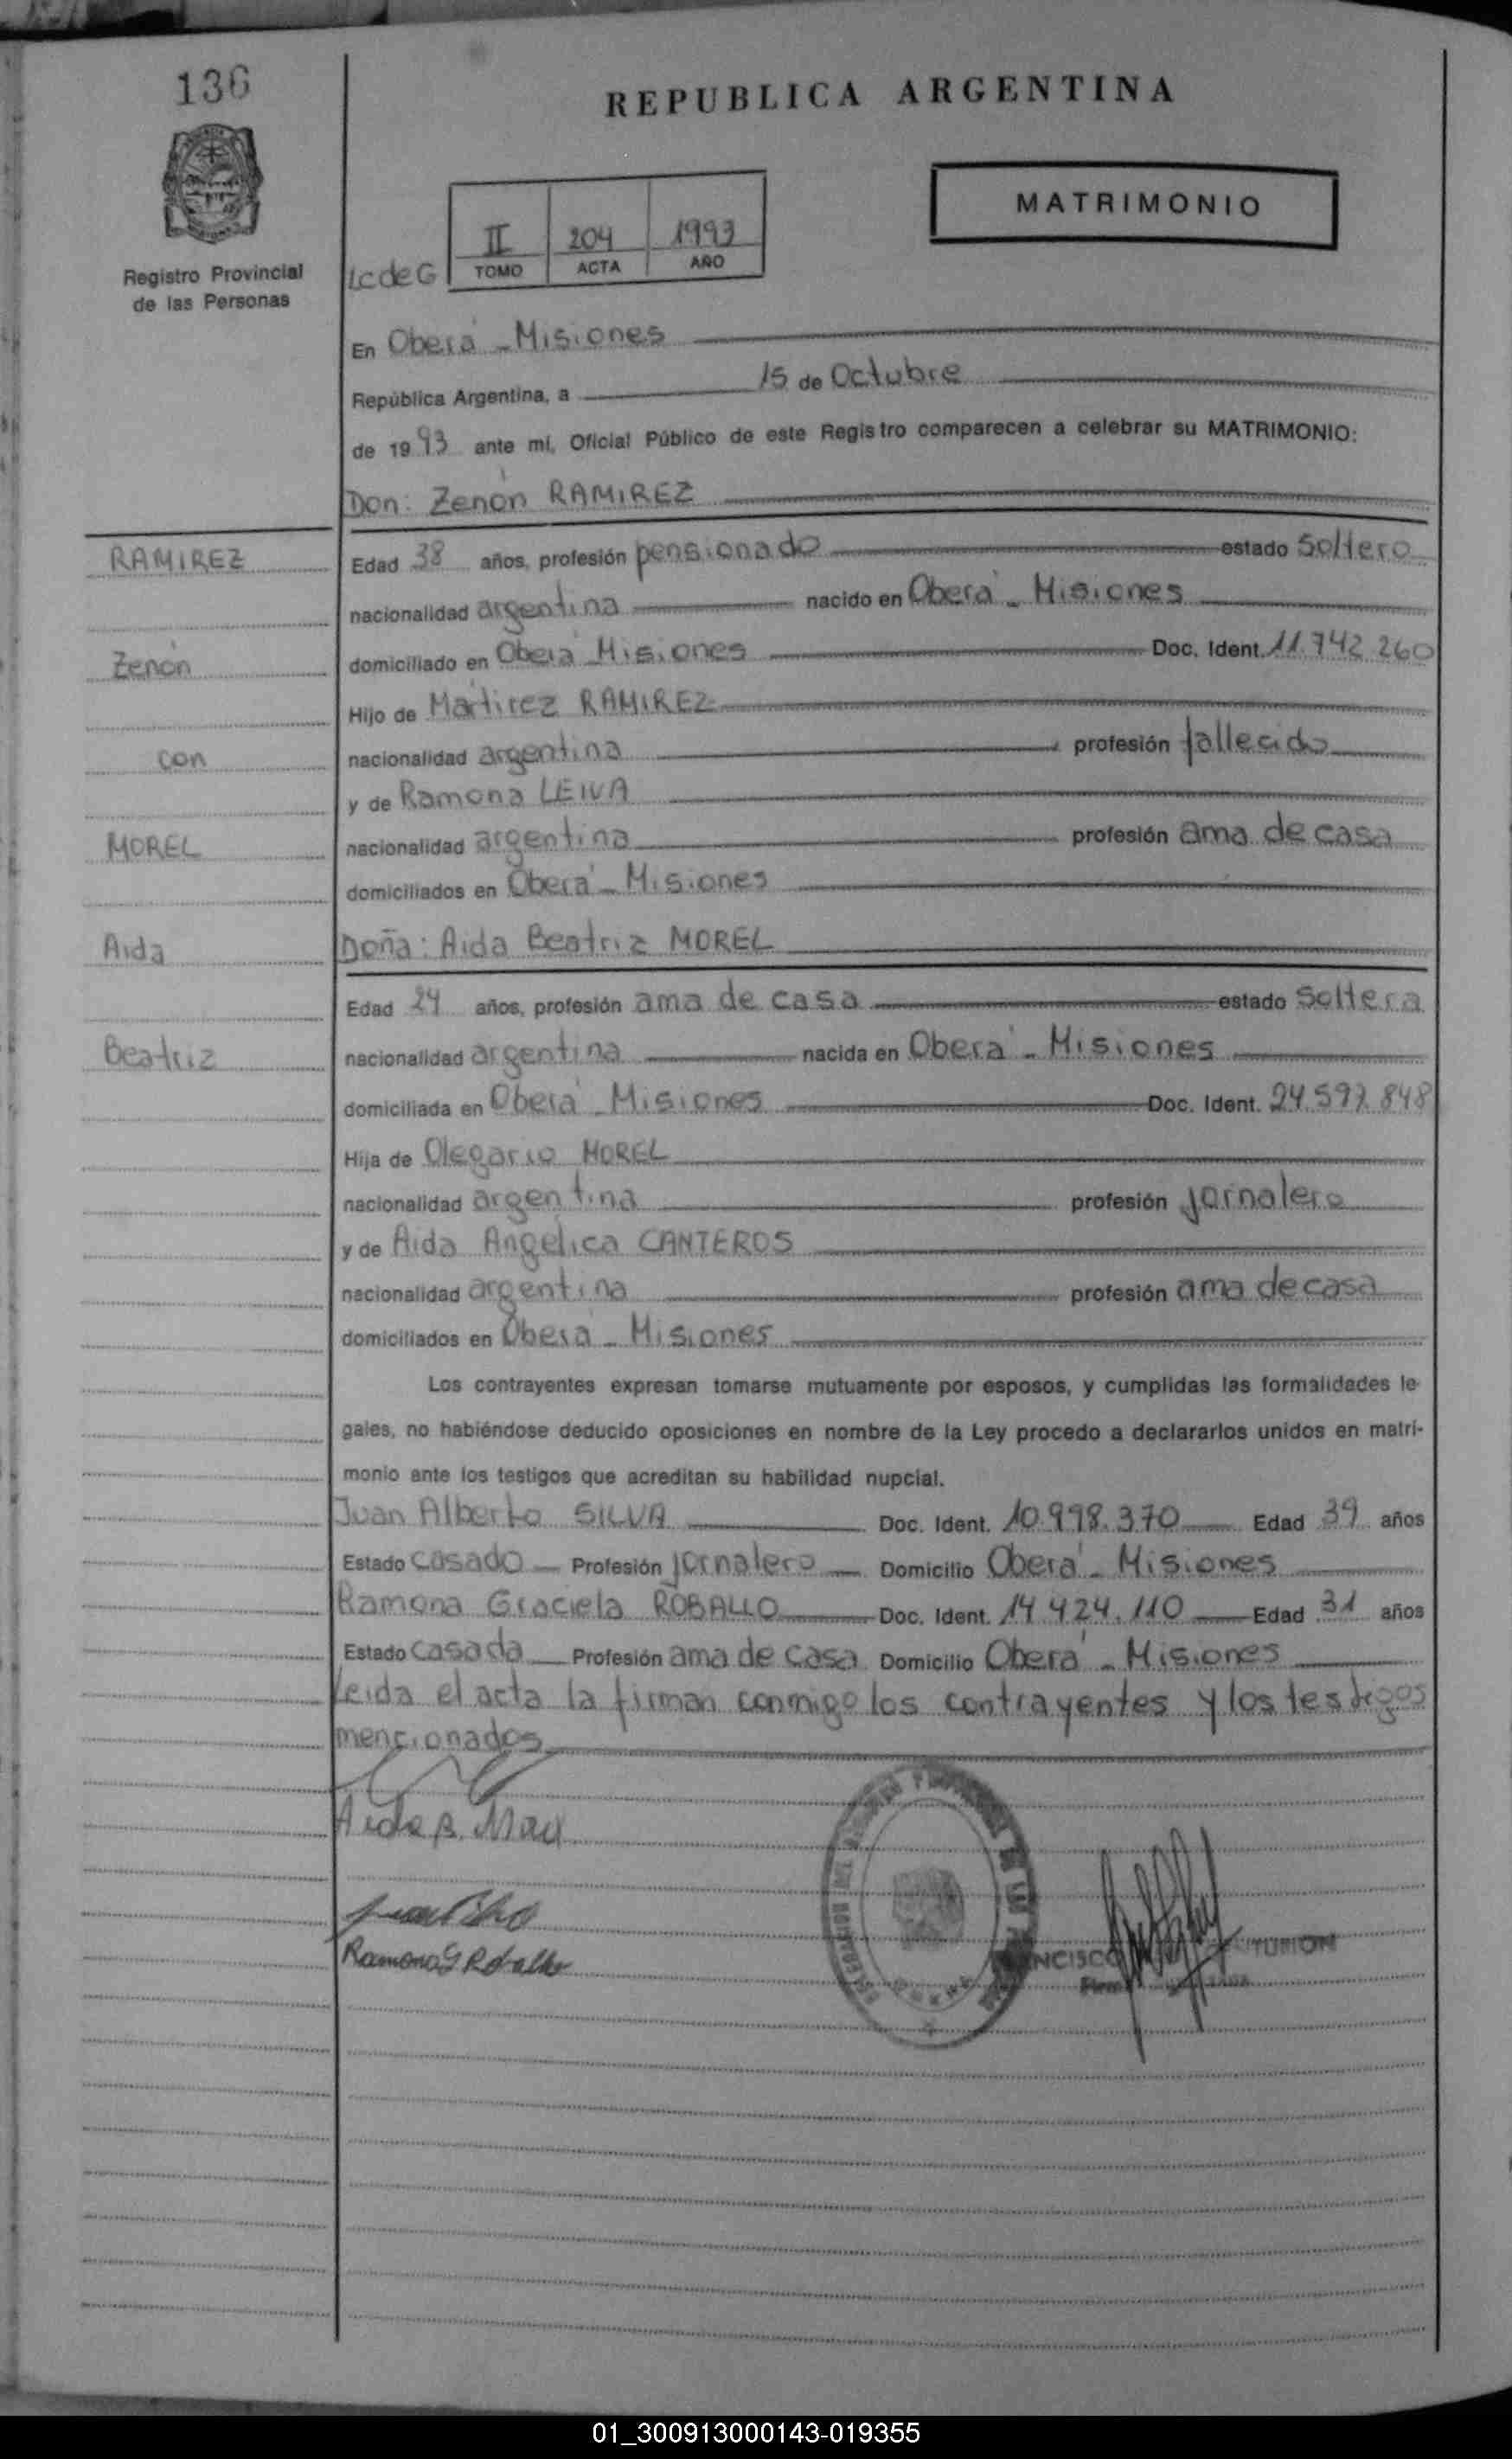 136
REPUBLICA ARGENTINA
MATRIMONIO
II 204 1993
TOMO ACTA AÑO
Registro Provincial
de las Personas
LcdeG
En Oberá - Misiones
República Argentina, a 15 de Octubre
de 1993 ante mí, Oficial Público de este Registro comparecen a celebrar su MATRIMONIO:
Don: Zenón RAMIREZ
RAMIREZ
Edad 38 años, profesión pensionado estado soltero
nacionalidad argentina nacido en Oberá - Misiones
Zenón
domiciliado en Oberá Misiones Doc. Ident. 11.742.260
Hijo de Mártirez RAMIREZ
con
nacionalidad argentina profesión fallecido
y de Ramona LEIVA
MOREL
nacionalidad argentina profesión ama de casa
domiciliados en Oberá - Misiones
Aida
Doña: Aida Beatriz MOREL
Edad 24 años, profesión ama de casa estado soltera
Beatriz
nacionalidad argentina nacida en Oberá - Misiones
domiciliada en Oberá - Misiones Doc. Ident. 24.597.848
Hija de Olegario MOREL
nacionalidad argentina profesión jornalero
y de Aida Angélica CANTEROS
nacionalidad argentina profesión ama de casa
domiciliados en Oberá - Misiones
Los contrayentes expresan tomarse mutuamente por esposos, y cumplidas las formalidades le-
gales, no habiéndose deducido oposiciones en nombre de la Ley procedo a declararlos unidos en matri-
monio ante los testigos que acreditan su habilidad nupcial.
Juan Alberto SILVA Doc. Ident. 10.998.370 Edad 39 años
Estado casado Profesión jornalero Domicilio Oberá - Misiones
Ramona Graciela ROBALLO Doc. Ident. 14.424.110 Edad 31 años
Estado casada Profesión ama de casa Domicilio Oberá - Misiones
leida el acta la firman conmigo los contrayentes y los testigos
mencionados
Aida B.
Ramona G Roballo
01_300913000143-019355